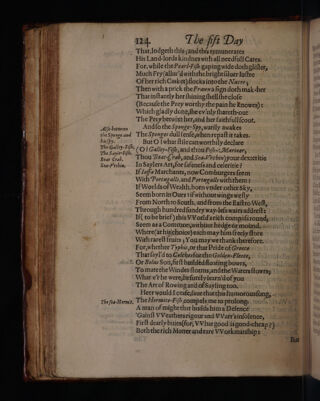 124. The fift Day
That, lodgeth this; and this remunerates
His Land-lords kindnes with all needfull Cates.
For, while the Pearl-Fish gaping wide doth glister,
Much Fry (allur'd with the bright silver lustre
Of her rich Casket) flocks into the Nacre;
Then with a prick the Prawn a sign doth mak-her
That instantly her shining shell she close
(Because the Prey worthy the pain he knows):
Which gladly done, she ev'nly shareth-out
The Prey betwixt her, and her faithfull scout.
Also between the Sponge and his spy.
And so the Sponge-Spy, warily awakes
The Sponges dull sense, when repast it takes.
But O! what stile can worthily declare
The Galley-Fish, The Sayle-Fish, Boat-Crab, Sea-Vrchin.
(O! Galley-Fish, and thou Fish-Mariner,
Thou Boat-Crab, and Sea-Vrchin) your dexteritie
In Saylers Art, for safenes and celeritie?
If Jaffa Marchants, now Comburgers seem
With Portugalls, and Portugalls with them:
If Worlds of Wealth, born vnder other Sky,
Seem born in Ours: if without wings we fly
From North to South, and from the East to West,
Through hundred sundry way-les waies addrest:
If (to be brief) this VVorld's rich compass round,
Seem as a Common, without hedge or mound,
Where (at his choice) each may him freely store
With rarest fruits; You may we thank therefore.
For, whether Typhis, or that Pride of Greece
That sayl'd to Colchos for the Golden-Fleece,
Or Belus Son, first builded floating bowrs,
To mate the Windes storms, and the Waters stowrs;
What e'r he were, he surely learn'd of you
The Art of Rowing and of Sayling too.
The sea-Hermit.
Heer would I cease, saue that this humorous song,
The Hermite-Fish compels me to prolong.
A man of might that builds him a Defence
'Gainst VVeathers rigour and VVarr's insolence,
First dearly buies (for, VVhat good is good-cheap?)
Both the rich Matter and rare VVorkmanship:
But